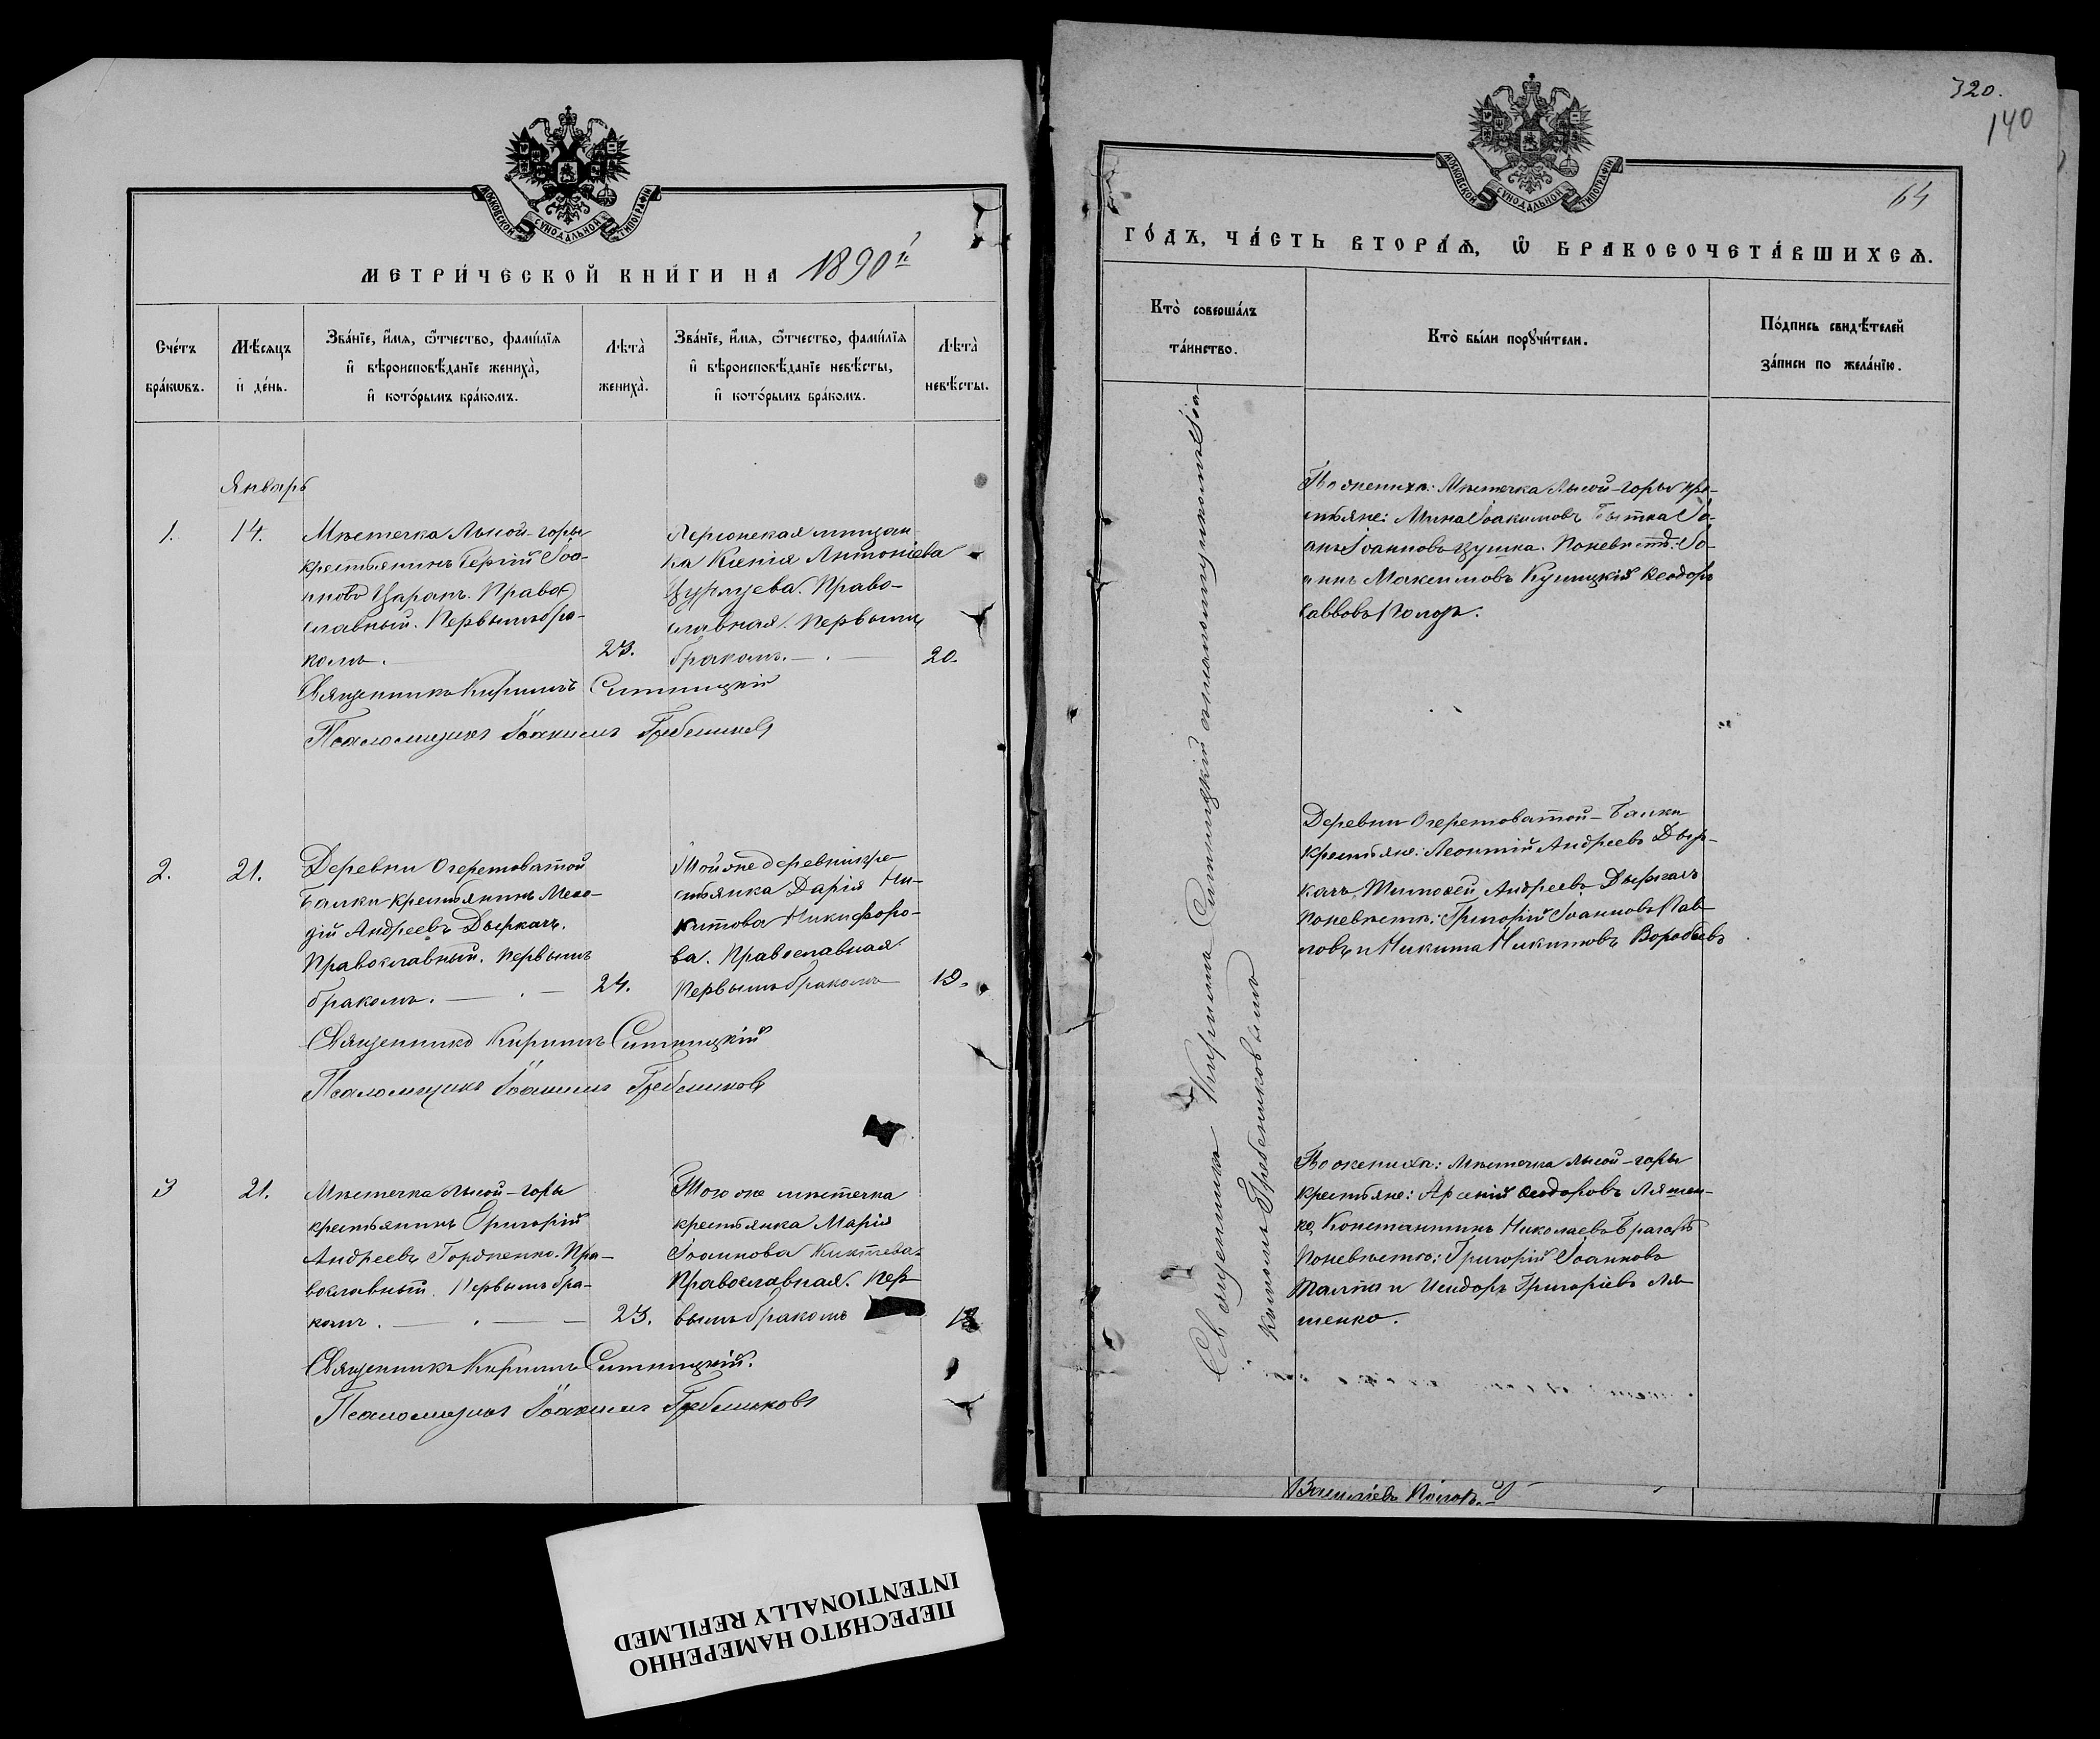 МОСКОВСКОЙ СѴНОДАЛЬНОЙ ТИПОГРАФІИ
МЕТРИ́ЧЕСКОЙ КНИ́ГИ НА 1890й
Сче́тъ бра́кѡвъ.
Мѣ́сяцъ и҆ де́нь.
Зва́нїе, и҆́мя, ѻ҆́тчество, фами́лїя
и҆ вѣроисповѣ́данїе жениха̀,
и҆ кото́рымъ бра́комъ.
Лѣта̀ жениха̀.
Зва́нїе, и҆́мя, ѻ҆́тчество, фами́лїя
и҆ вѣроисповѣ́данїе невѣ́сты,
и҆ кото́рымъ бра́комъ.
Лѣта̀ невѣ́сты.
Январь
1.
14.
Мѣстечка Лысой-горы
крестьянинъ Сергій Іоа-
нновъ Царанъ. Право-
славный. Первымъ бра-
комъ.
23.
Херсонская мѣщан-
ка Ксенія Антоніева
Православная. Первымъ
бракомъ.
20.
Священникъ Кириллъ Ситницкій
Псаломщикъ Іоакимъ Гребениковъ
2.
21.
Деревни Очеретоватой
Балки крестьянинъ Меѳо-
дій Андреевъ Дыркачъ.
Православный. Первымъ
бракомъ.
24.
Той же деревни кре-
стьянка Дарія Ни-
китова Никифоро-
ва. Православная.
Первымъ бракомъ
19.
Священникъ Кириллъ Ситницкій
Псаломщикъ Іоакимъ Гребениковъ
3
21.
Мѣстечка Лысой-горы
крестьянинъ Григорій
Андреевъ Гордіенко. Пра-
вославный. Первымъ бра-
комъ.
23.
Того же мѣстечка
крестьянка Марія
Іоаннова
Православная. Пер-
вымъ бракомъ
18
Священникъ Кириллъ Ситницкій.
Псаломщикъ Іоакимъ Гребениковъ
320.
140
64
МОСКОВСКОЙ СѴНОДАЛЬНОЙ ТИПОГРАФІИ
ГО́ДЪ, ЧА́СТЬ ВТОРА́Ѧ, Ѽ БРАКОСОЧЕТА́ВШИХСѦ.
Кто̀ соверша́лъ
та́инство.
Кто̀ бы́ли порꙋчи́тели.
По́дпись свидѣ́телей
за́писи по жела́нїю.
Священникъ Кириллъ Ситницкій съ псаломщикомъ Іоа-
кимомъ Гребениковымъ
По женихѣ: Мѣстечка Лысой-горы кре-
стьяне: Мина Іоакимовъ Іо-
аннъ Іоанновъ Цушка. По невѣстѣ: Іо-
аннъ Максимовъ Кушицкій Ѳеодоръ
Саввовъ Попозъ.
Деревни Очеретоватой-Балки
крестьяне: Леонтій Андреевъ Дыр-
качъ Тимоѳей Андреевъ Дыркачъ
По невѣстѣ: Григорій Іоанновъ Пав-
ловъ и Никита Никитовъ Воробьевъ
По женихѣ: Мѣстечка Лысой-горы
крестьяне: Арсеній Ѳеодоровъ Ляшен-
ко, Константинъ Николаевъ Брагарь
По невѣстѣ: Григорій Іоанновъ
и Исидоръ Григоріевъ Ля-
шенко.
Васильевъ
ПЕРЕСНЯТО НАМЕРЕННО
INTENTIONALLY REFILMED